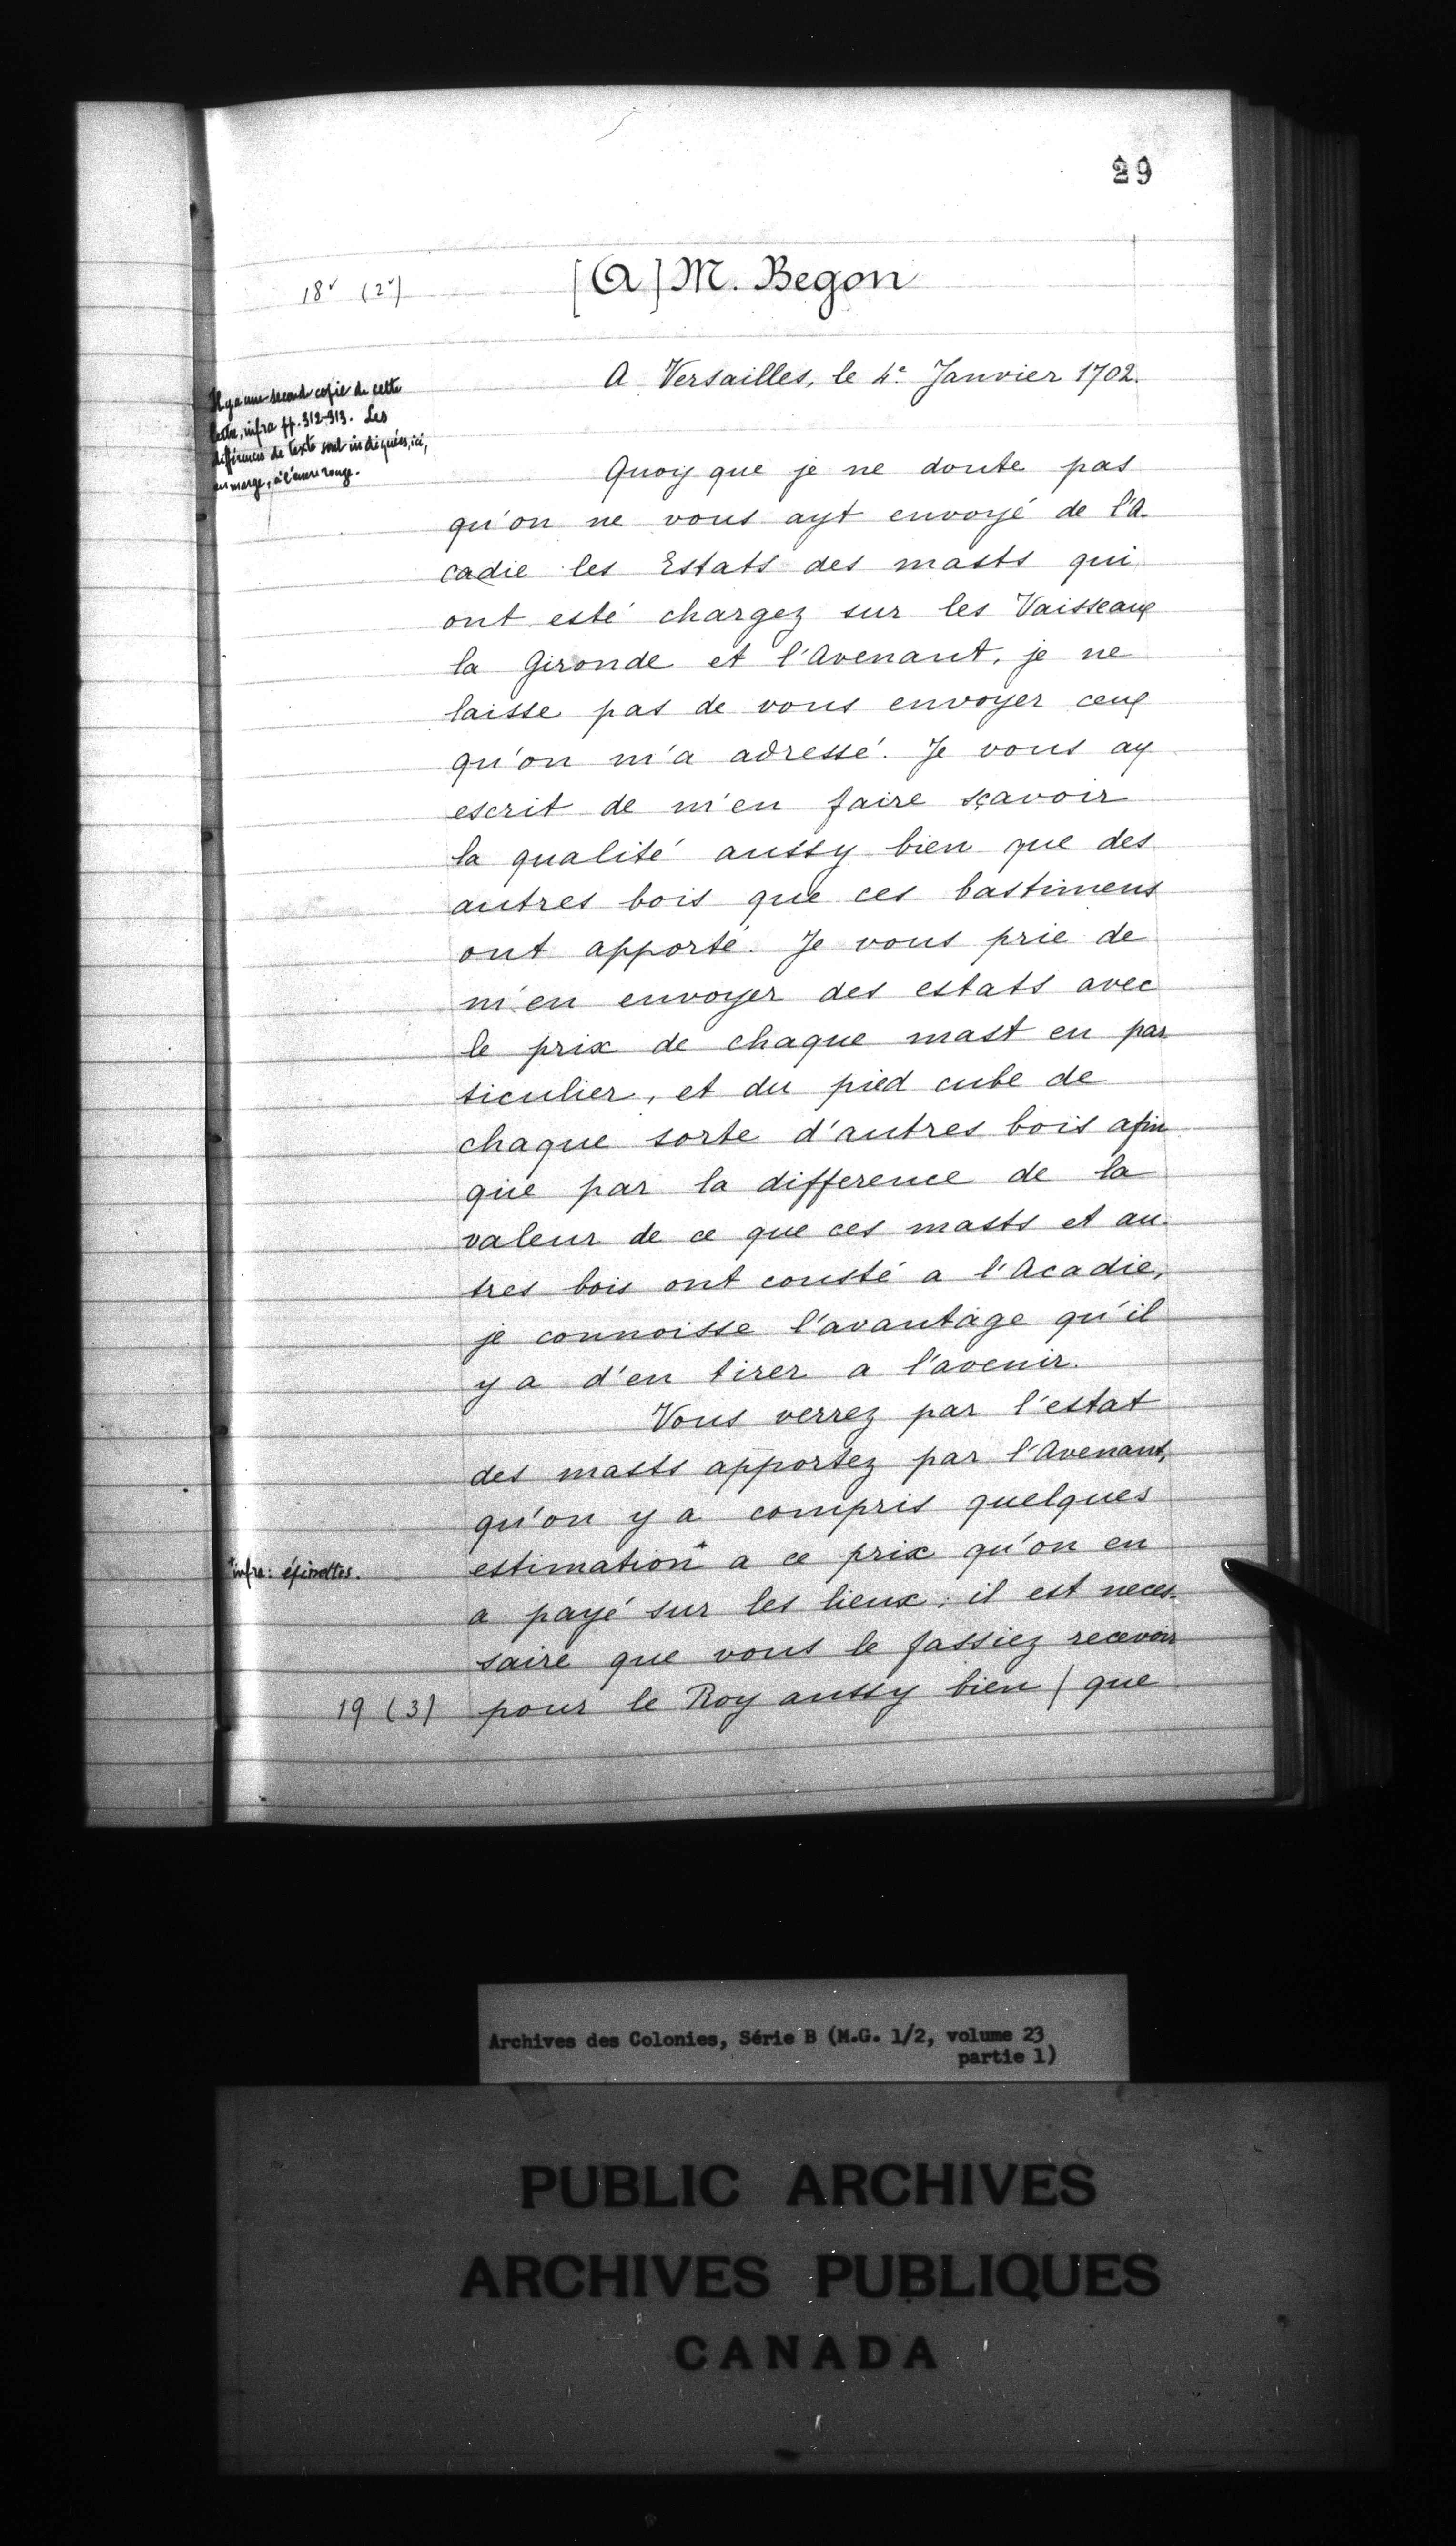 29
18v (2v)
[A] M. Begon
A Versailles, le 4e Janvier 1702.
Il y a une second copie de cette
lettre, infra pp. 312-313. Les
différences de texte sont indiquées, ici,
en marge, à l'encre rouge.
Quoy que je ne doute pas
qu'on ne vous ayt envoyé de l'A
cadie les Estats des masts qui
ont esté chargez sur les Vaisseaux
la Gironde et l'Avenant, je ne
laisse pas de vous envoyer ceux
qu'on m'a adressé. Je vous ay
escrit de m'en faire sçavoir
la qualité aussy bien que des
autres bois que ces bastimens
ont apporté. Je vous prie de
m'en envoyer des estats avec
le prix de chaque mast en par
ticulier, et du pied cube de
chaque sorte d'autres bois afin
que par la difference de la
valeur de ce que ces masts et au-
tres bois ont cousté a l'Acadie,
je connoisse l'avantage qu'il
y a d'en tirer a l'avenir.
Vous verrez par l'estat
des masts apportez par l'Avenant,
qu'on y a compris quelques
estimation* a ce prix qu'on en
*infra: épinettes.
a payé sur les lieux; il est neces-
saire que vous le fassiez recevoir
19 (3) pour le Roy aussy bien / que
Archives des Colonies, Série B (M.G. 1/2, volume 23
partie 1)
PUBLIC ARCHIVES
ARCHIVES PUBLIQUES
CANADA